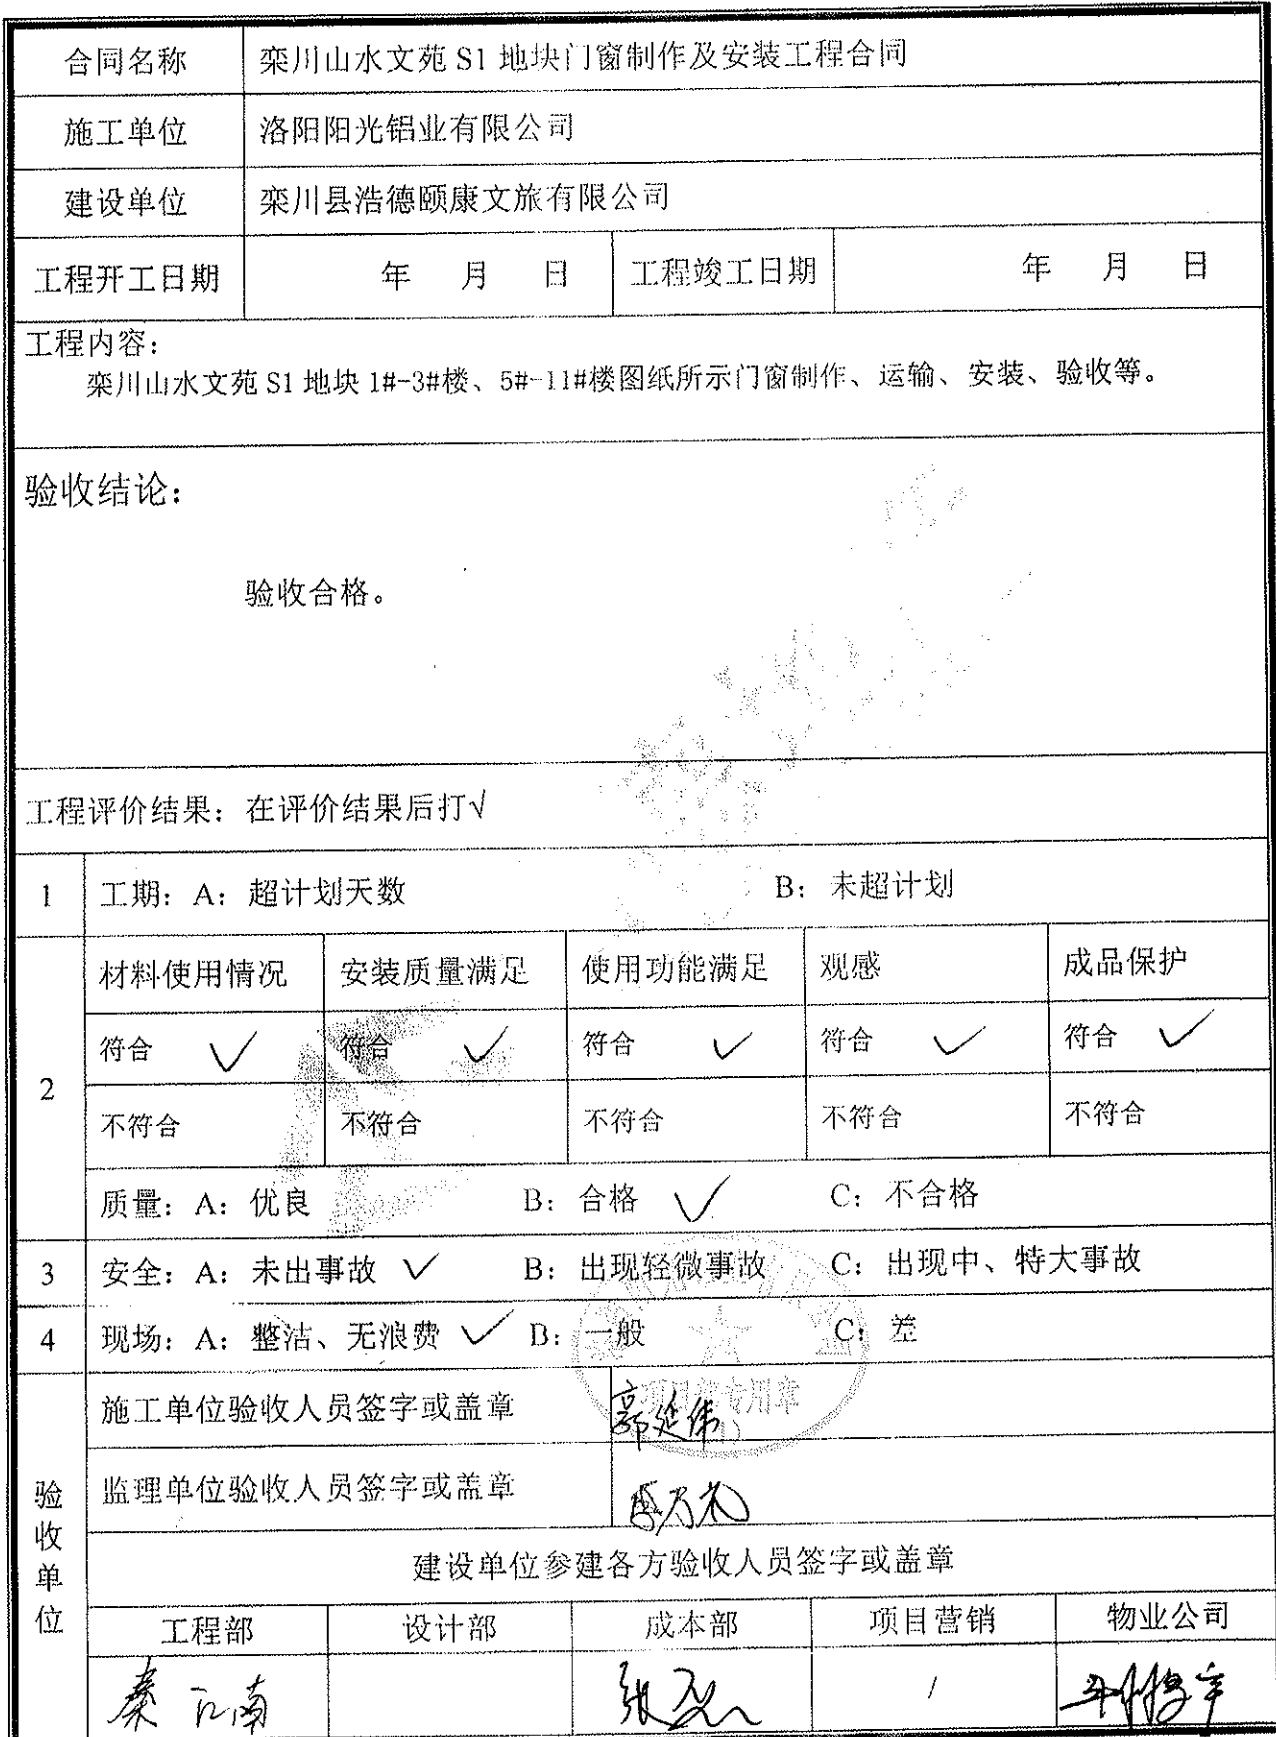 合同名称 栾川山水文苑 S1 地块门窗制作及安装工程合同
施工单位 洛阳阳光铝业有限公司
建设单位 栾川县浩德颐康文旅有限公司
工程开工日期 年 月 日 工程竣工日期 年 月 日
工程内容：
栾川山水文苑 S1 地块 1#-3#楼、5#-11#楼图纸所示门窗制作、运输、安装、验收等。
验收结论：
验收合格。
工程评价结果：在评价结果后打√
1 工期：A：超计划天数 B：未超计划
材料使用情况 安装质量满足 使用功能满足 观感 成品保护
符合 ✓ 符合 ✓ 符合 ✓ 符合 ✓ 符合 ✓
2
不符合 不符合 不符合 不符合 不符合
质量：A：优良 B：合格 ✓ C：不合格
3 安全：A：未出事故 ✓ B：出现轻微事故 C：出现中、特大事故
4 现场：A：整洁、无浪费 ✓ B：一般 C：差
项目部专用章
(1)
验收单位
施工单位验收人员签字或盖章 郭延伟
监理单位验收人员签字或盖章
建设单位参建各方验收人员签字或盖章
工程部 设计部 成本部 项目营销 物业公司
秦江南 /